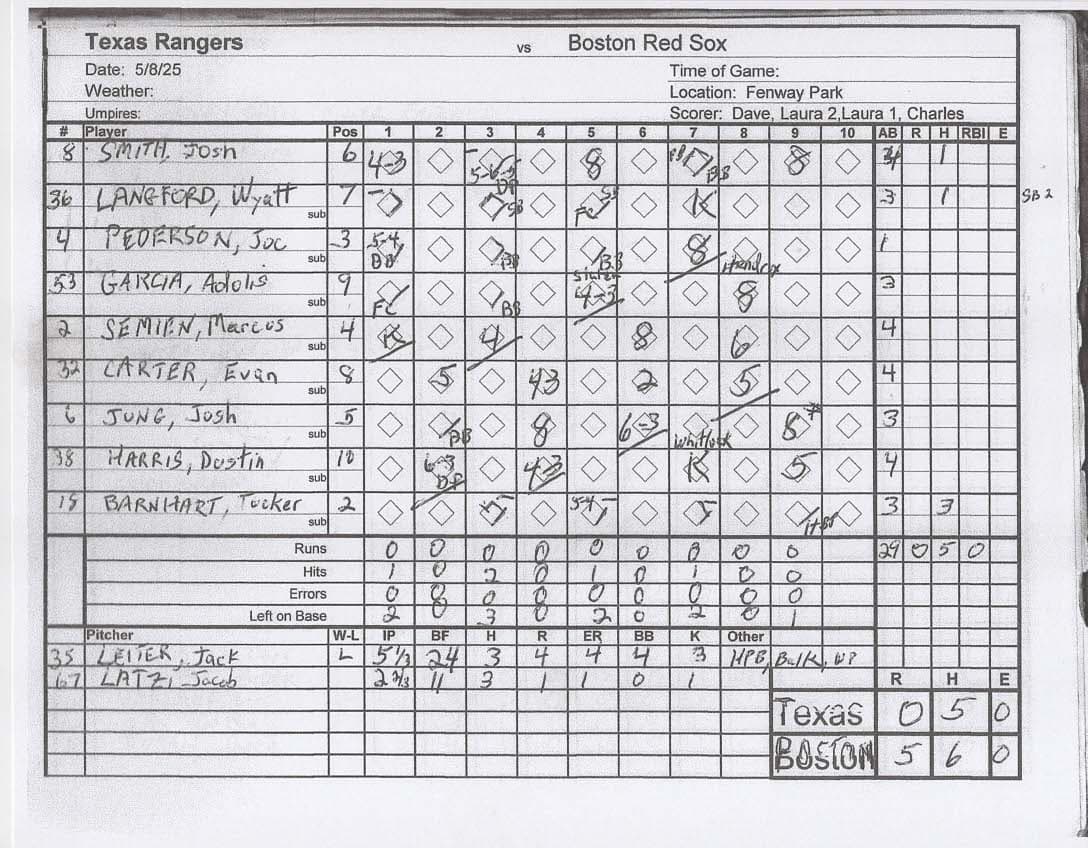 Texas Rangers vs Boston Red Sox
Date: 5/8/25
Weather: Time of Game:
Location: Fenway Park
Umpires: Scorer: Dave, Laura 2,Laura 1, Charles
# Player Pos 1 2 3 4 5 6 7 8 9 10 AB R H RBI E
8 SMITH, Josh 6 4-3 5-6-3 DP 8 BB 8 4 1
36 LANGFORD, Wyatt 7 SB FC SB K 3 1 SB 2
sub
4 PEDERSON, Joc 3 5-4 BB BB BB 8 1
sub Hendrix
53 GARCIA, Adolis 9 FC BB 4-3 8 3
sub
2 SEMIEN, Marcus 4 K 4 8 6 4
sub
32 CARTER, Evan 8 5 43 2 5 4
sub
6 JUNG, Josh 5 BB 8 6-3 8* 3
sub Whitlock
38 HARRIS, Dustin 10 6-3 DP 43 K 5 4
sub
15 BARNHART, Tucker 2 5-4 3 3
sub
Runs 0 0 0 0 0 0 0 0 0 29 0 5 0
Hits 1 0 2 0 1 0 1 0 0
Errors 0 0 0 0 0 0 0 0 0
Left on Base 2 0 3 0 2 0 2 0 1
Pitcher W-L IP BF H R ER BB K Other
35 LEITER, Jack L 5 1/3 24 3 4 4 4 3 HPB, Balk, WP
67 LATZ, Jacob 2 2/3 11 3 1 1 0 1
R H E
Texas 0 5 0
BOSTON 5 6 0